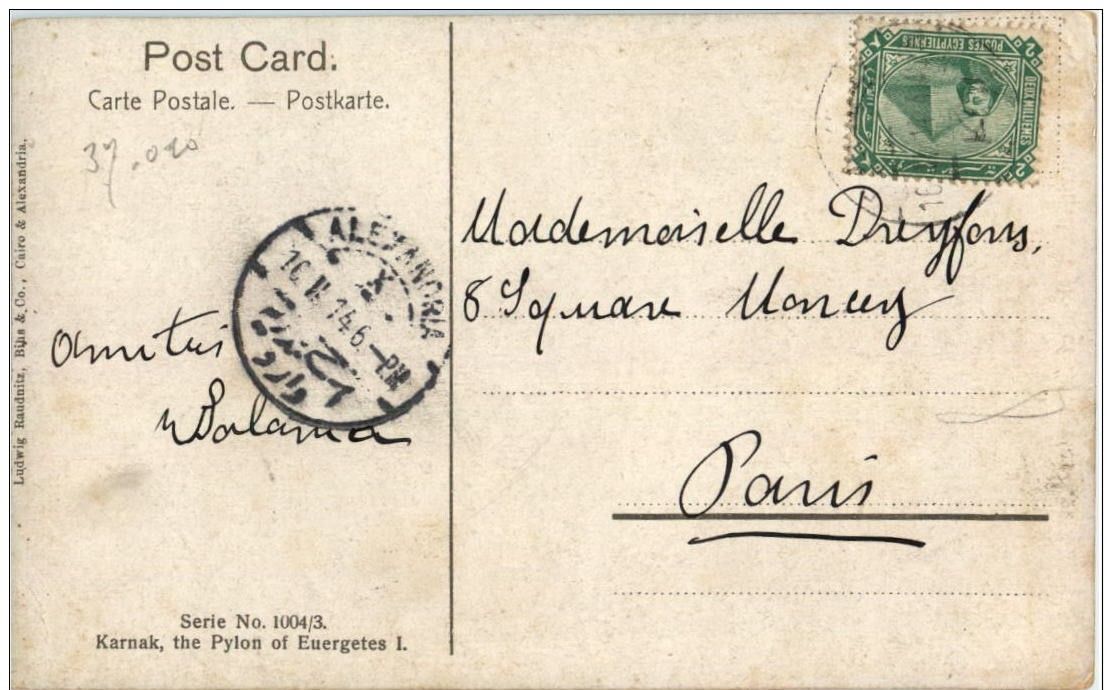 Post Card.
Carte Postale. — Postkarte.
37.020
Ludwig Raudnitz, Bihn & Co., Cairo & Alexandria.
ALEXANDRIA
6.-PM
POSTES EGYPTIENNES
DEUX MILLIEMES
2
2
Mademoiselle Dreyfous,
8 Square Moncey
Paris
Amitiés
Serie No. 1004/3.
Karnak, the Pylon of Euergetes I.